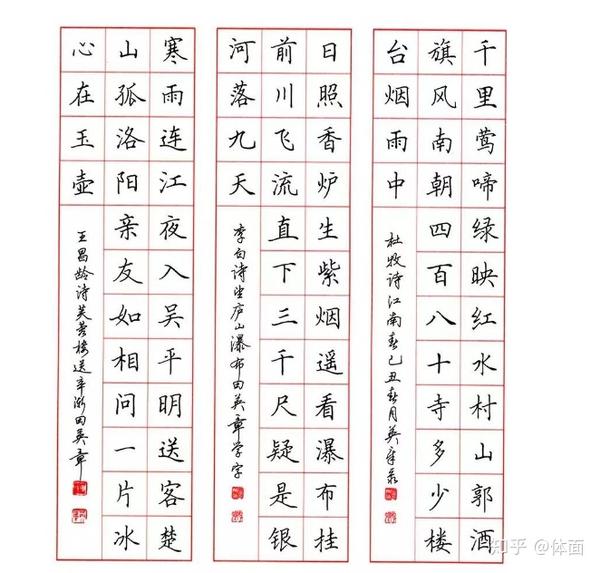 千里莺啼绿映红水村山郭酒
旗风南朝四百八十寺多少楼
台烟雨中
杜牧诗江南春己丑春月英章录
日照香炉生紫烟遥看瀑布挂
前川飞流直下三千尺疑是银
河落九天
李白诗望庐山瀑布田英章学字
寒雨连江夜入吴平明送客楚
山孤洛阳亲友如相问一片冰
心在玉壶
王昌龄诗芙蓉楼送辛渐田英章
知乎 @体面